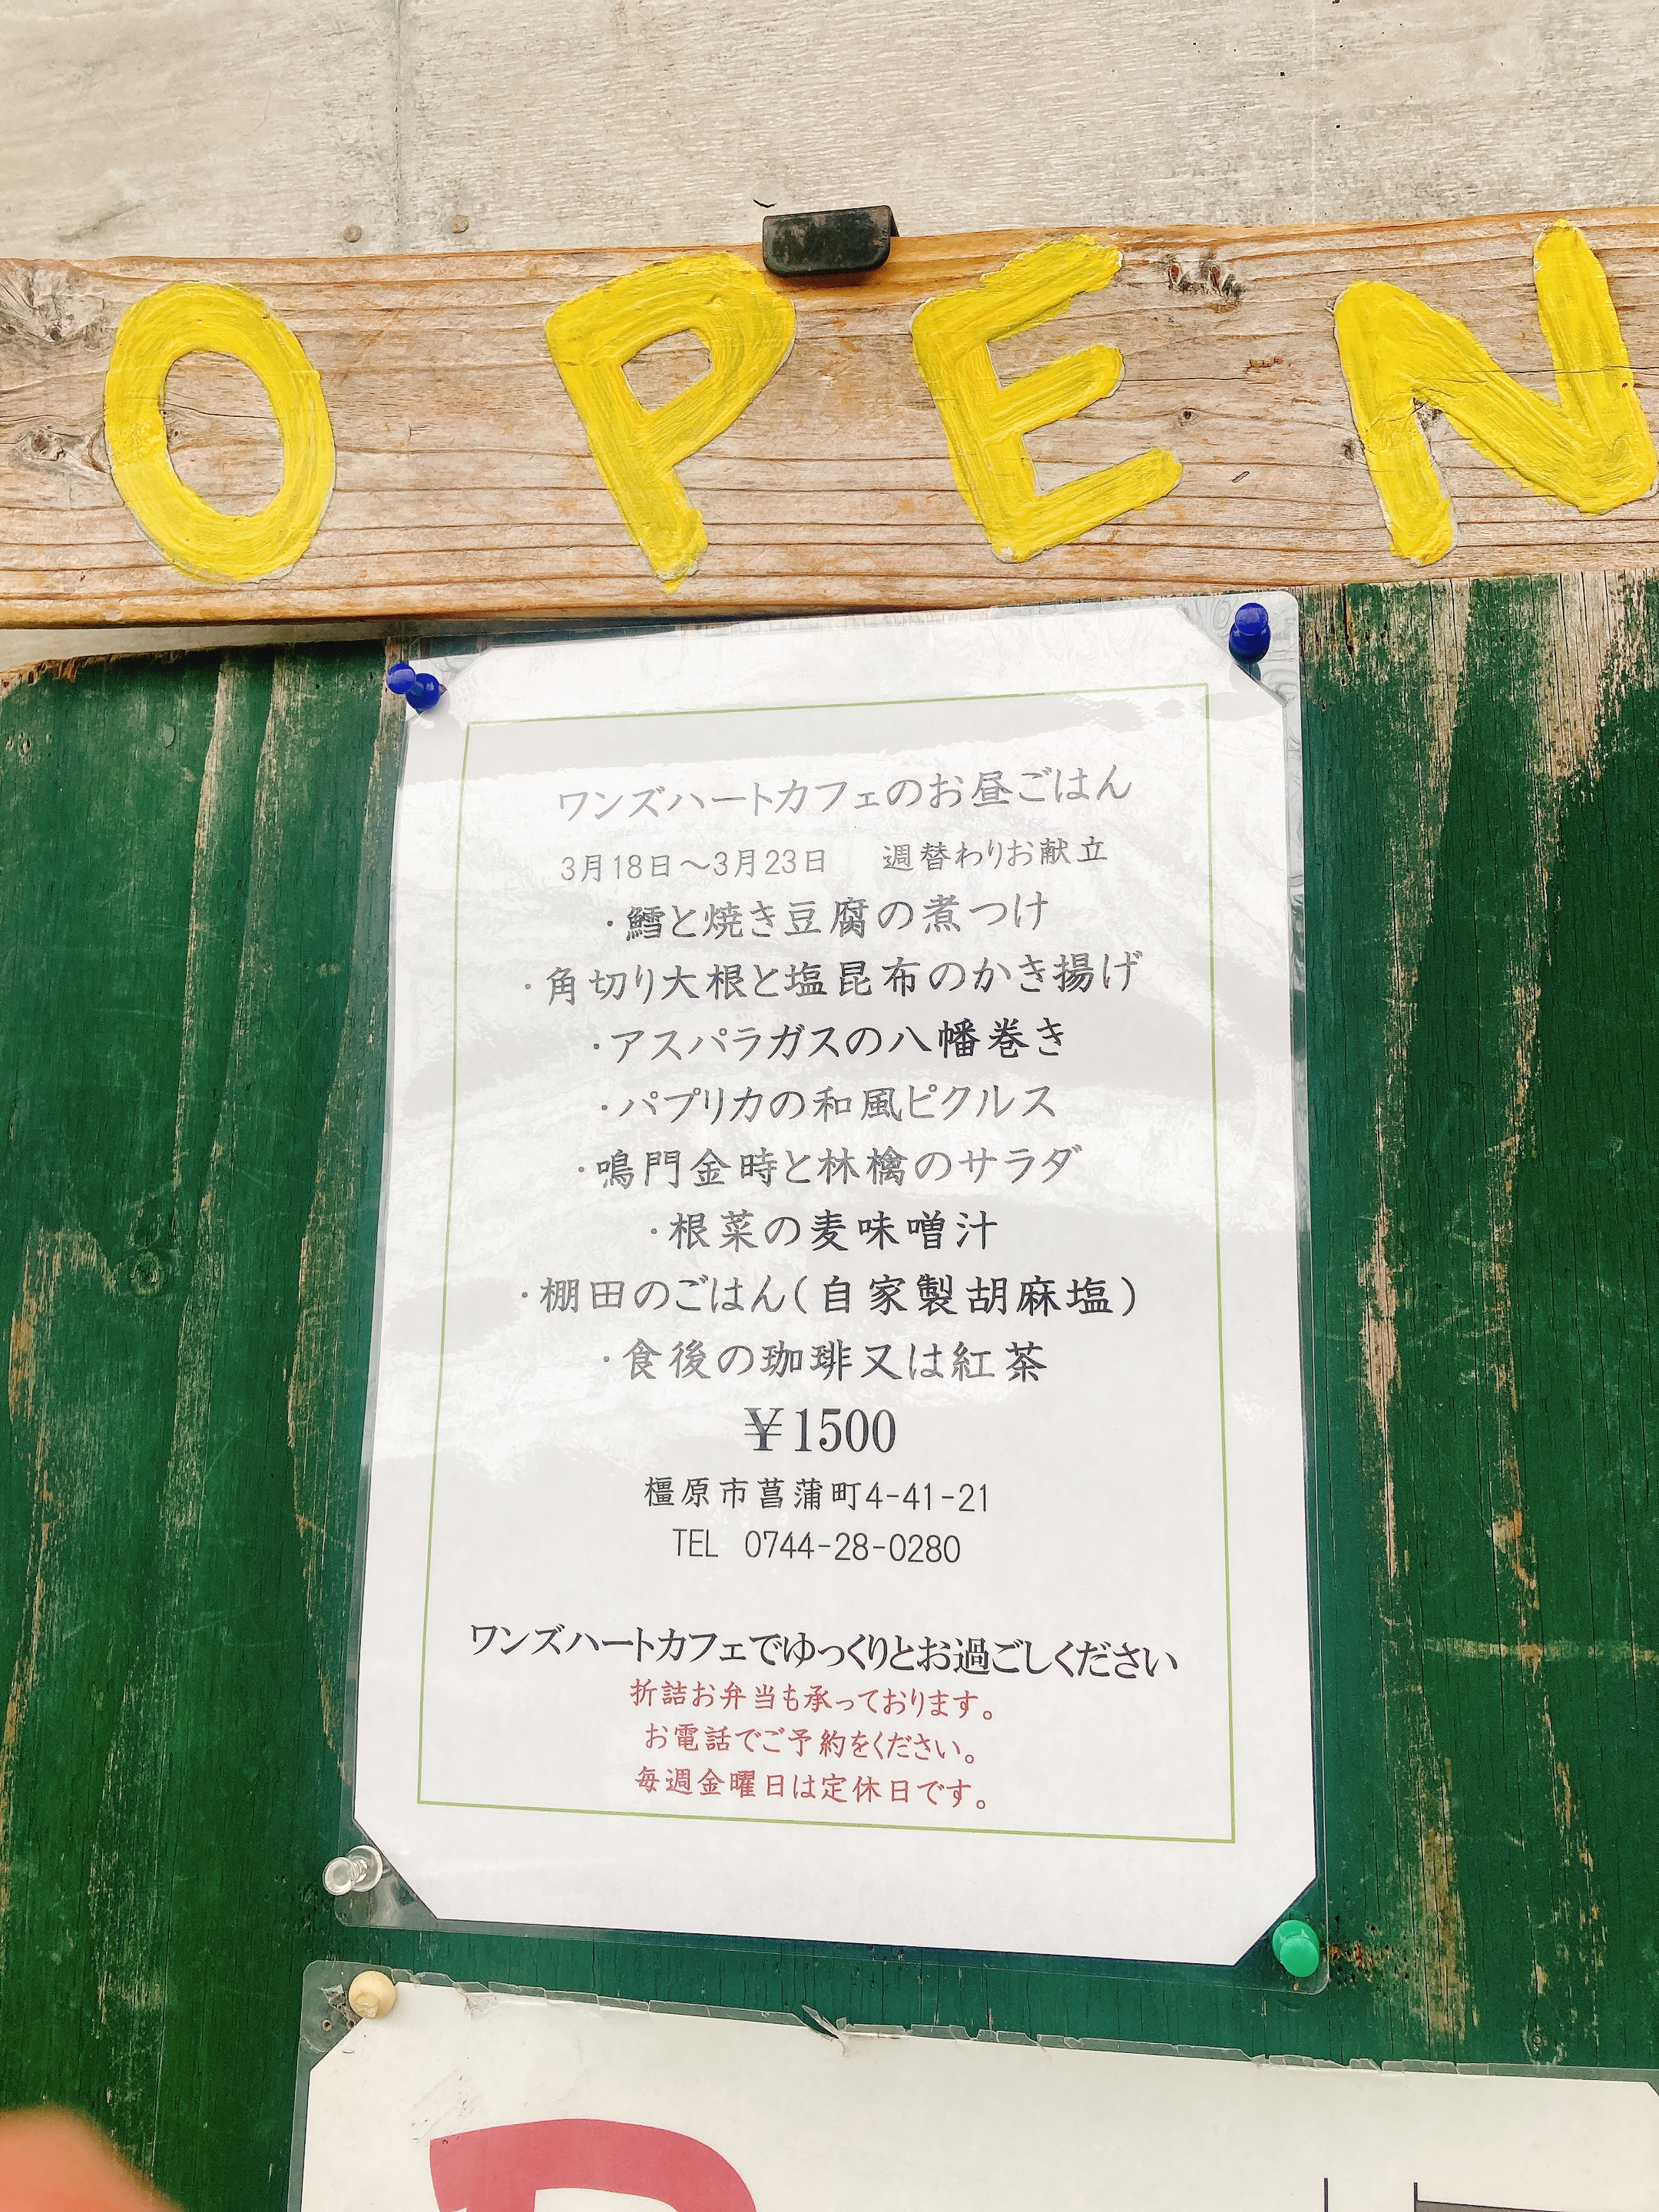 OPEN
ワンズハートカフェのお昼ごはん
3月18日～3月23日　週替わりお献立
・鱈と焼き豆腐の煮つけ
・角切り大根と塩昆布のかき揚げ
・アスパラガスの八幡巻き
・パプリカの和風ピクルス
・鳴門金時と林檎のサラダ
・根菜の麦味噌汁
・棚田のごはん(自家製胡麻塩)
・食後の珈琲又は紅茶
￥1500
橿原市菖蒲町4-41-21
TEL 0744-28-0280
ワンズハートカフェでゆっくりとお過ごしください
折詰お弁当も承っております。
お電話でご予約をください。
毎週金曜日は定休日です。